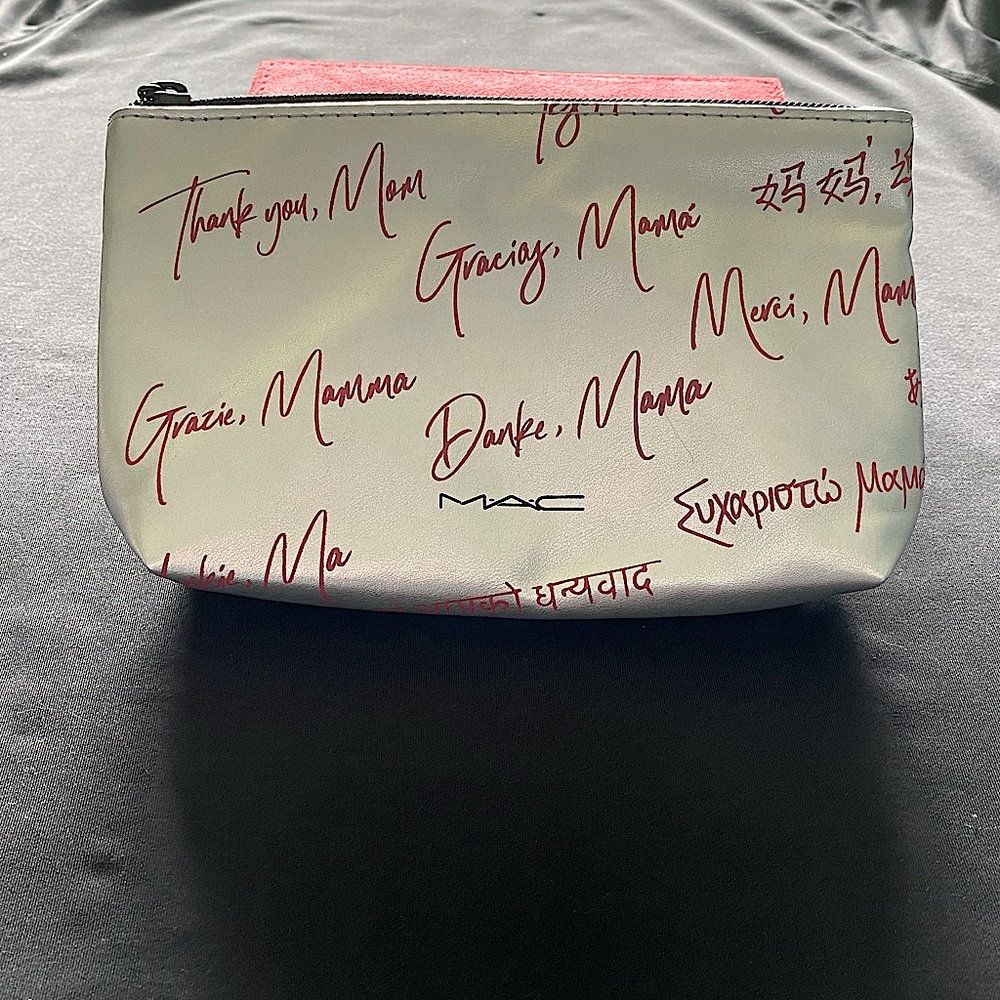 Thank you, Mom
妈妈,
Gracias, Mamá
Merci,
Grazie, Mamma
Danke, Mama
MAC
Ευχαριστώ
Ma
धन्यवाद